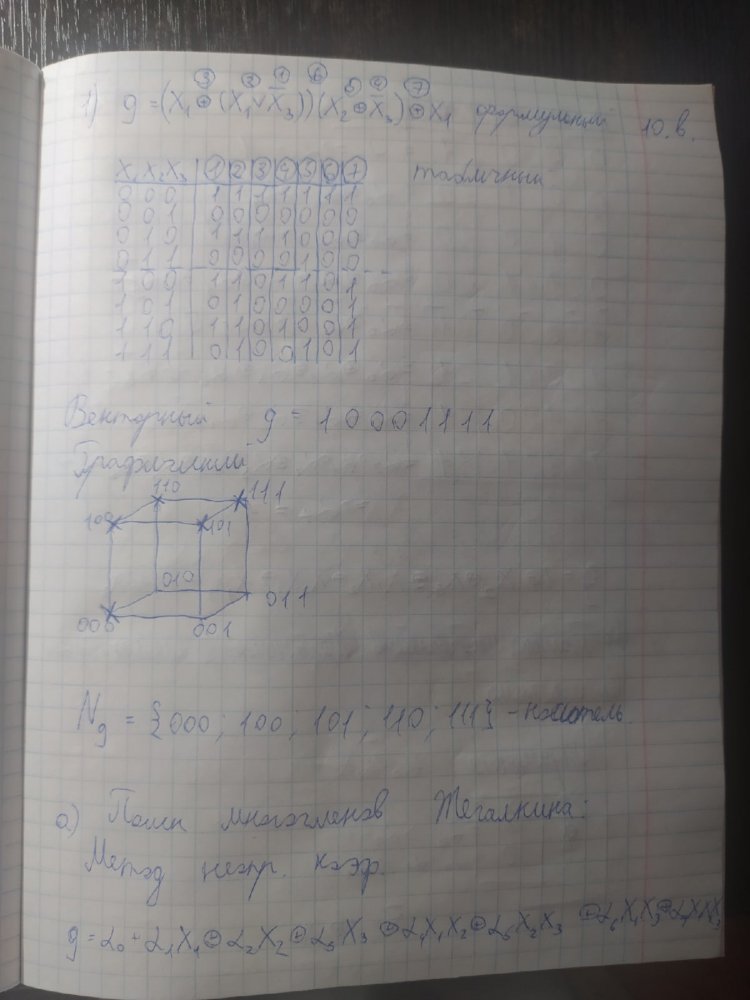 ③ ② ① ⑥ ⑤ ④ ⑦
1) g = (X₁ ⊕ (X₁ ∨ X̅₃)) (X₂ ⊕ X̅₃) ⊕ X₁ формульный 10.в.
X₁ X₂ X₃ | ① | ② | ③ | ④ | ⑤ | ⑥ | ⑦ табличный
0 0 0 1 1 1 1 1 1 1
0 0 1 0 0 0 0 0 0 0
0 1 0 1 1 1 1 0 0 0
0 1 1 0 0 0 0 1 0 0
1 0 0 1 1 0 1 1 0 1
1 0 1 0 1 0 0 0 0 1
1 1 0 1 1 0 1 0 0 1
1 1 1 0 1 0 0 1 0 1
Векторный g = 1 0 0 0 1 1 1 1
Графический
110 111
100 101
010 011
000 001
N_g = {000; 100; 101; 110; 111} - носитель
а) Полин многочленов Жегалкина:
Метод неопр. коэф.
g = α₀ + α₁X₁ ⊕ α₂X₂ ⊕ α₃X₃ ⊕ α₄X₁X₂ ⊕ α₅X₂X₃ ⊕ α₆X₁X₃ ⊕ α₇X₁X₂X₃